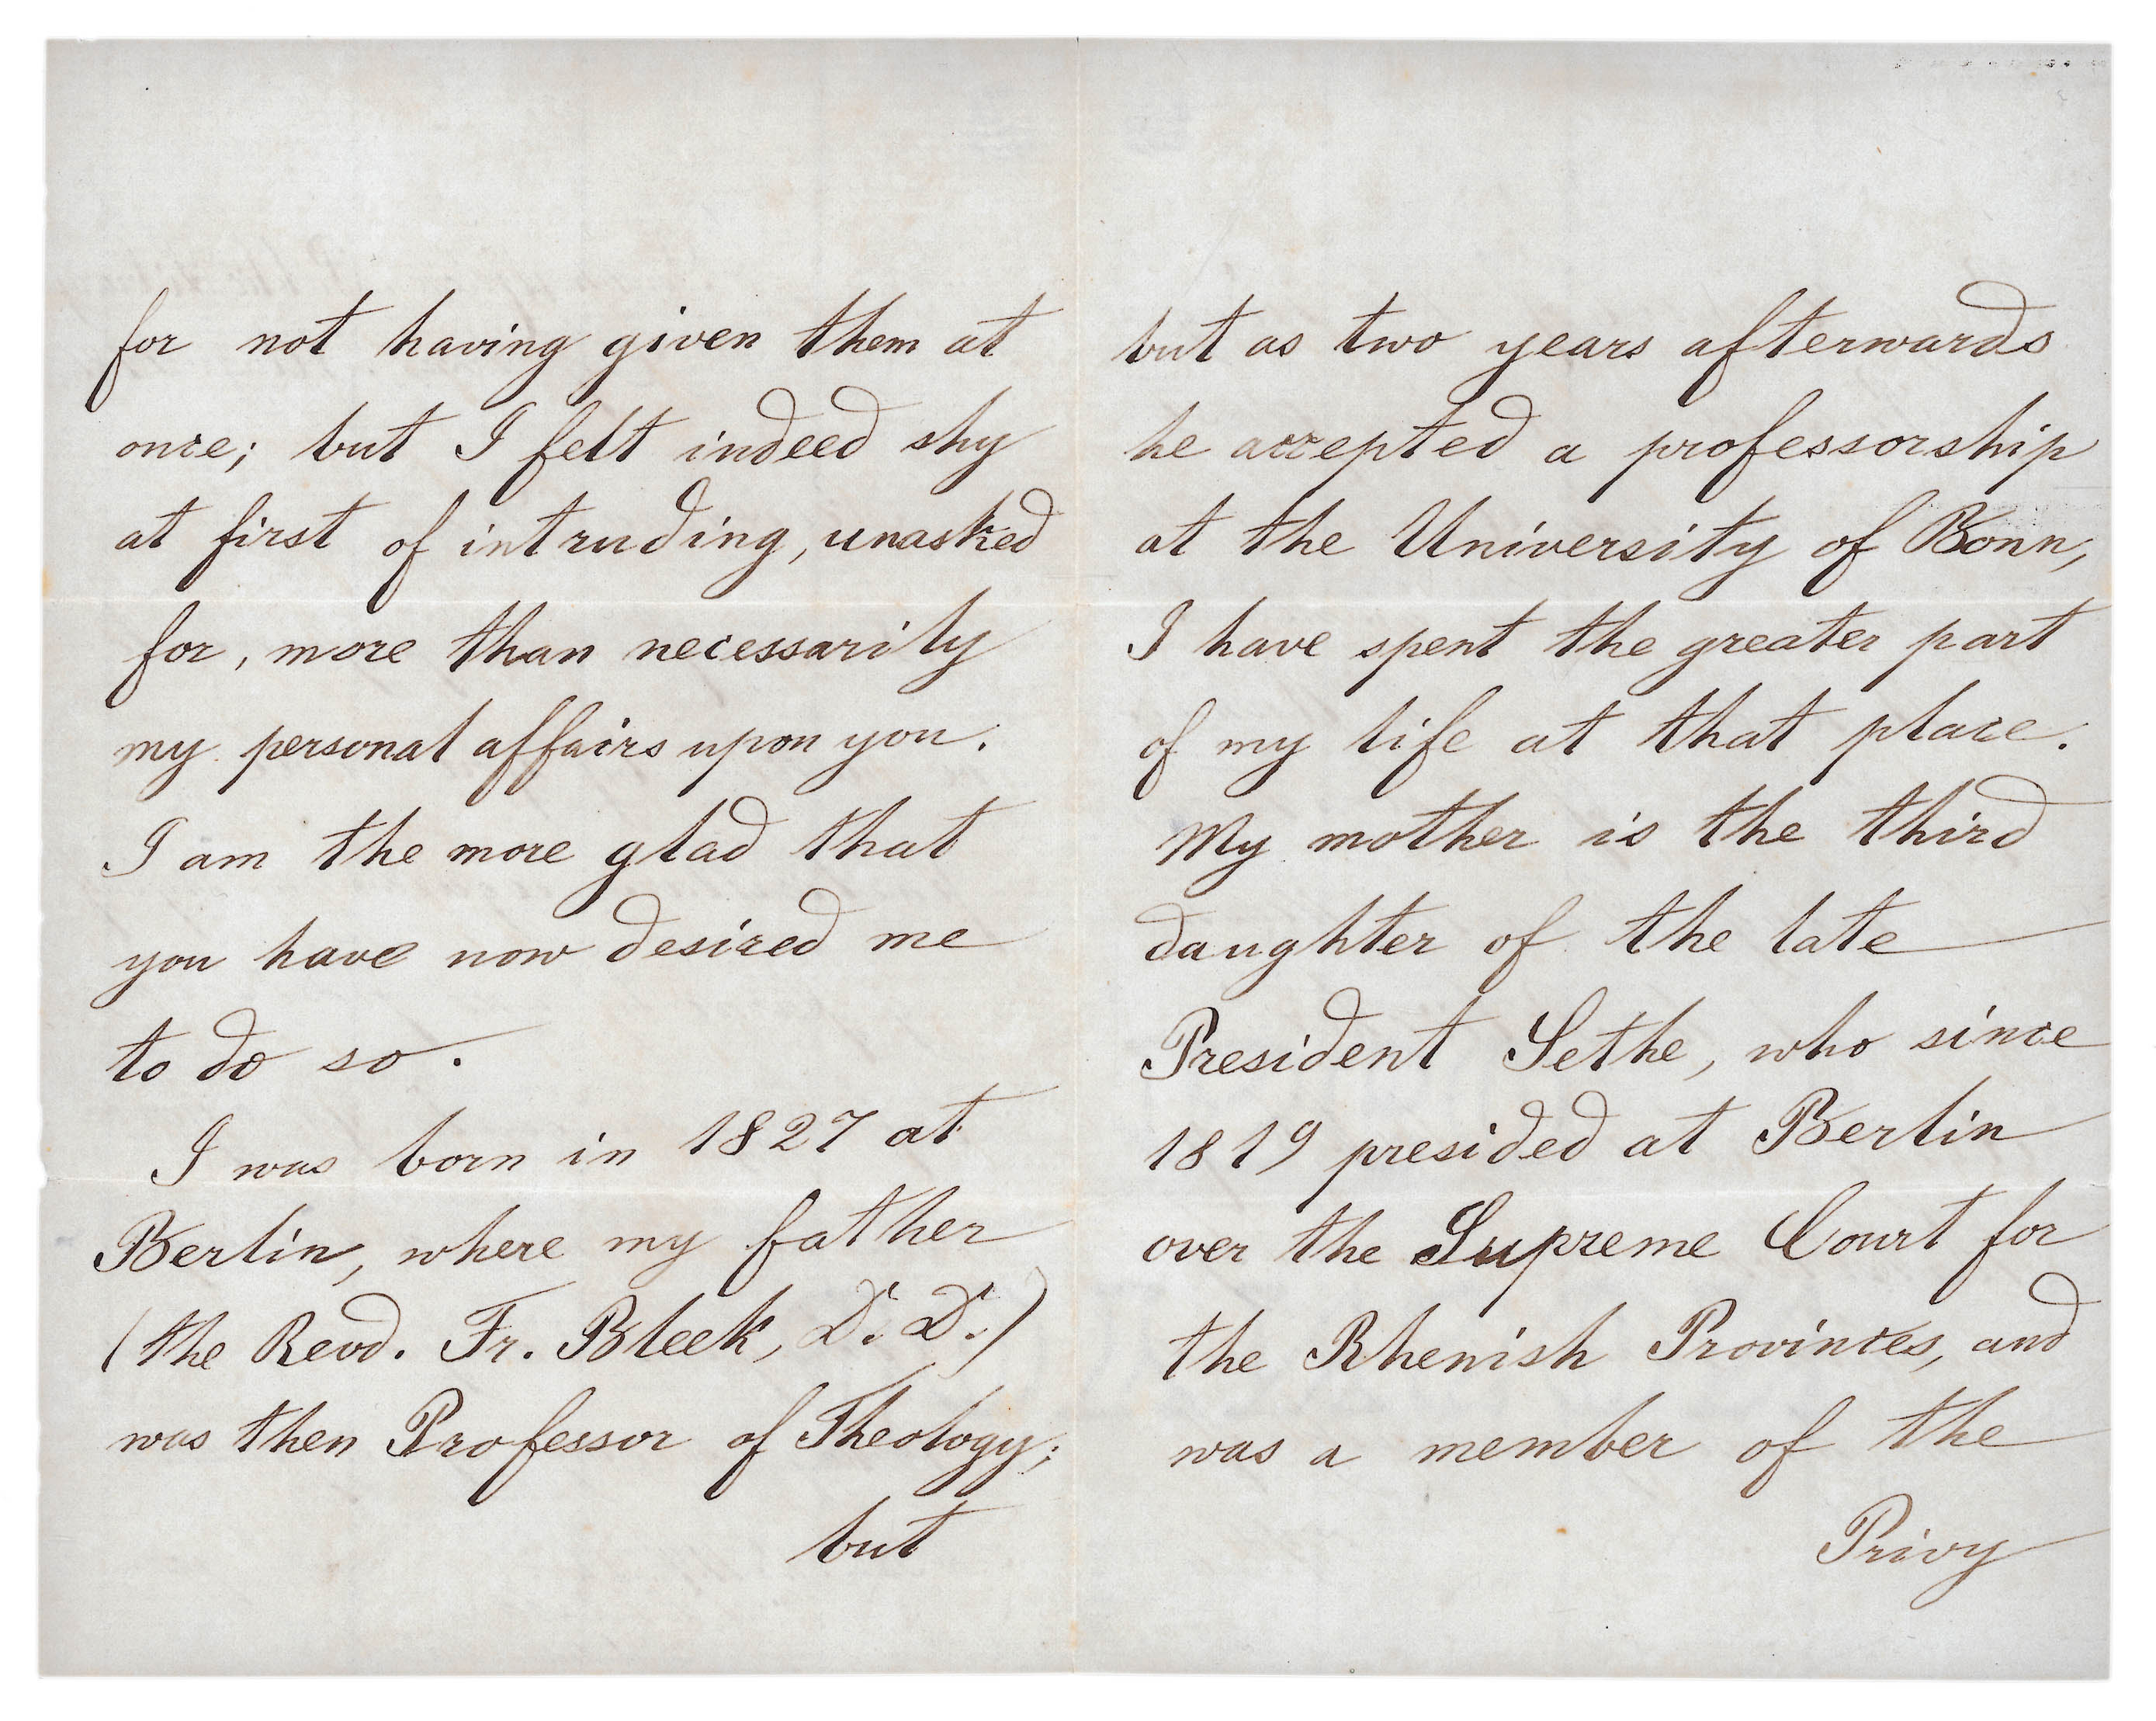 for not having given them at
once; but I felt indeed shy
at first of intruding, unasked
for, more than necessarily
my personal affairs upon you.
I am the more glad that
you have now desired me
to do so.
I was born in 1827 at
Berlin, where my father
(the Revd. Fr. Bleek, D. D.)
was then Professor of Theology;
but
but as two years afterwards
he accepted a professorship
at the University of Bonn,
I have spent the greater part
of my life at that place.
My mother is the third
daughter of the late
President Sethe, who since
1819 presided at Berlin
over the Supreme Court for
the Rhenish Provinces, and
was a member of the
Privy